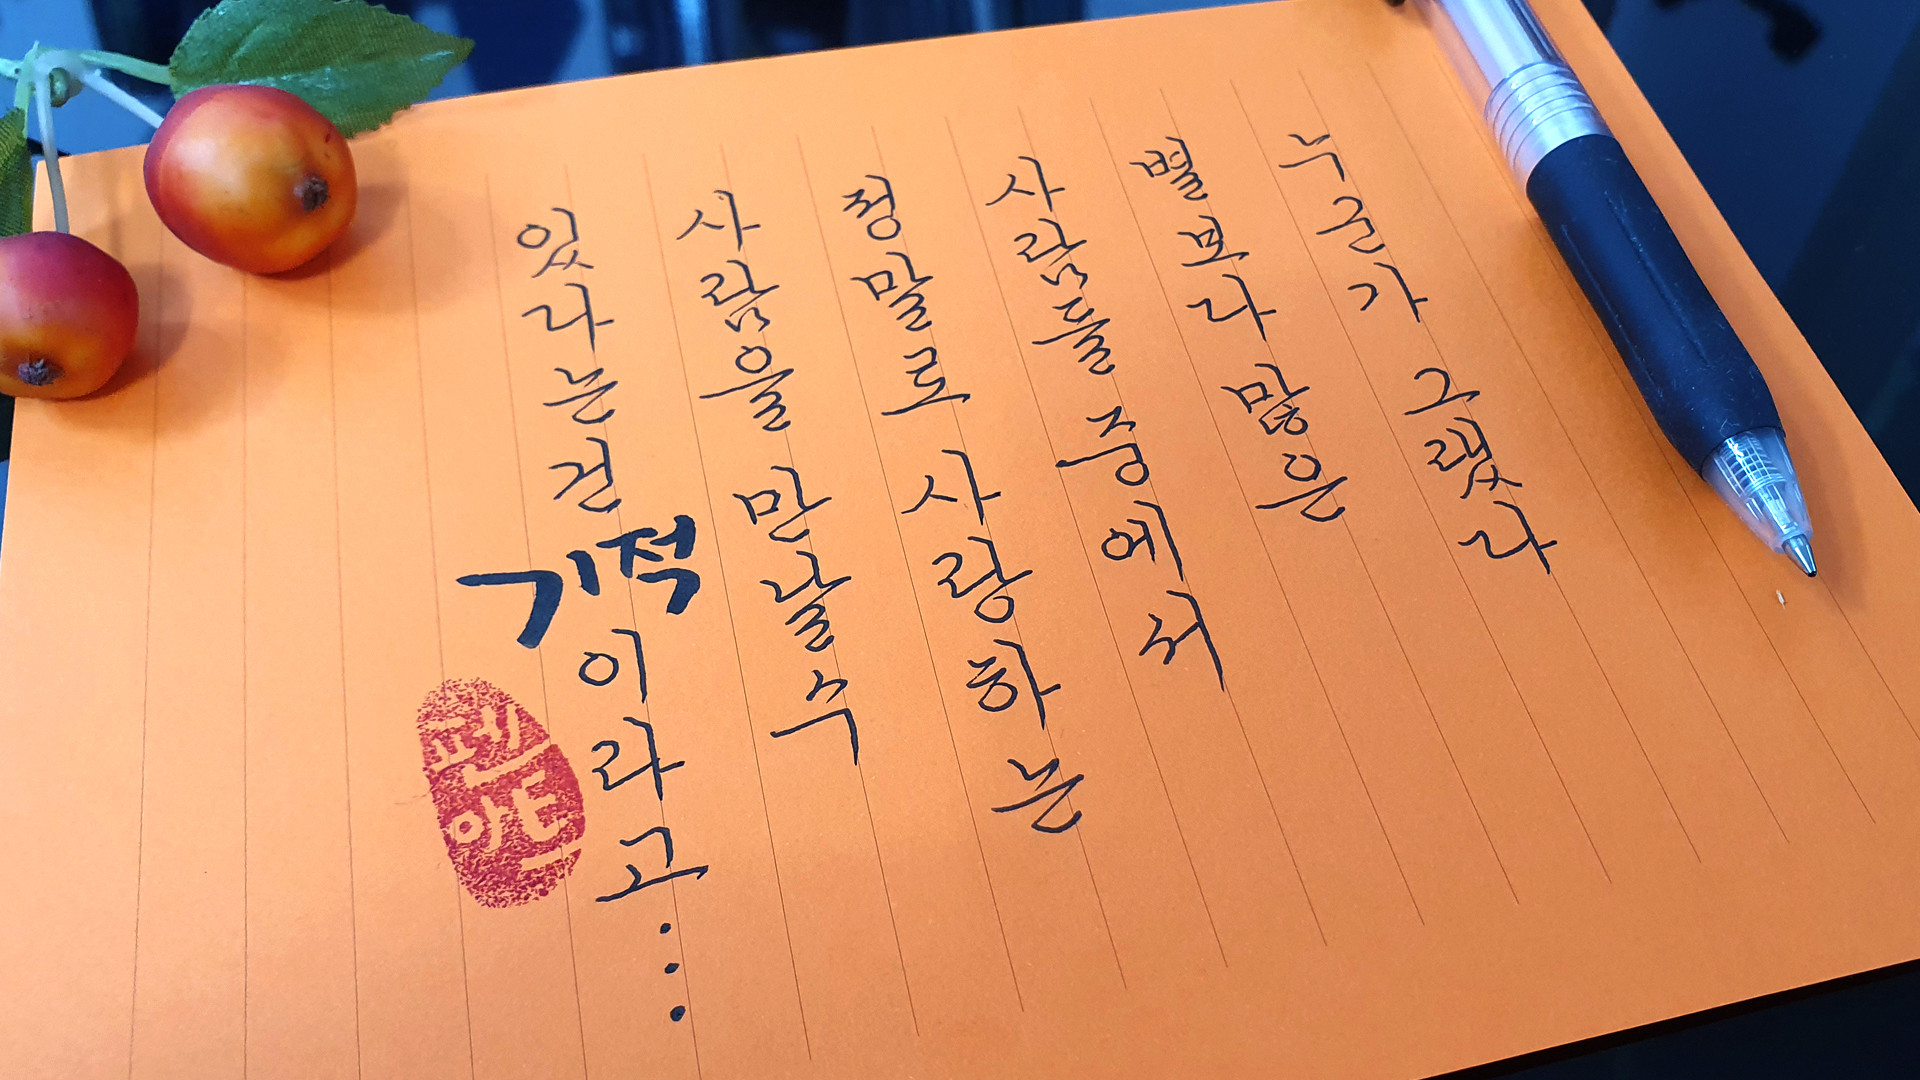 누군가 그랬다
별보다 많은
사람들 중에서
정말로 사랑하는
사람을 만날 수
있다는 건 기적이라고...